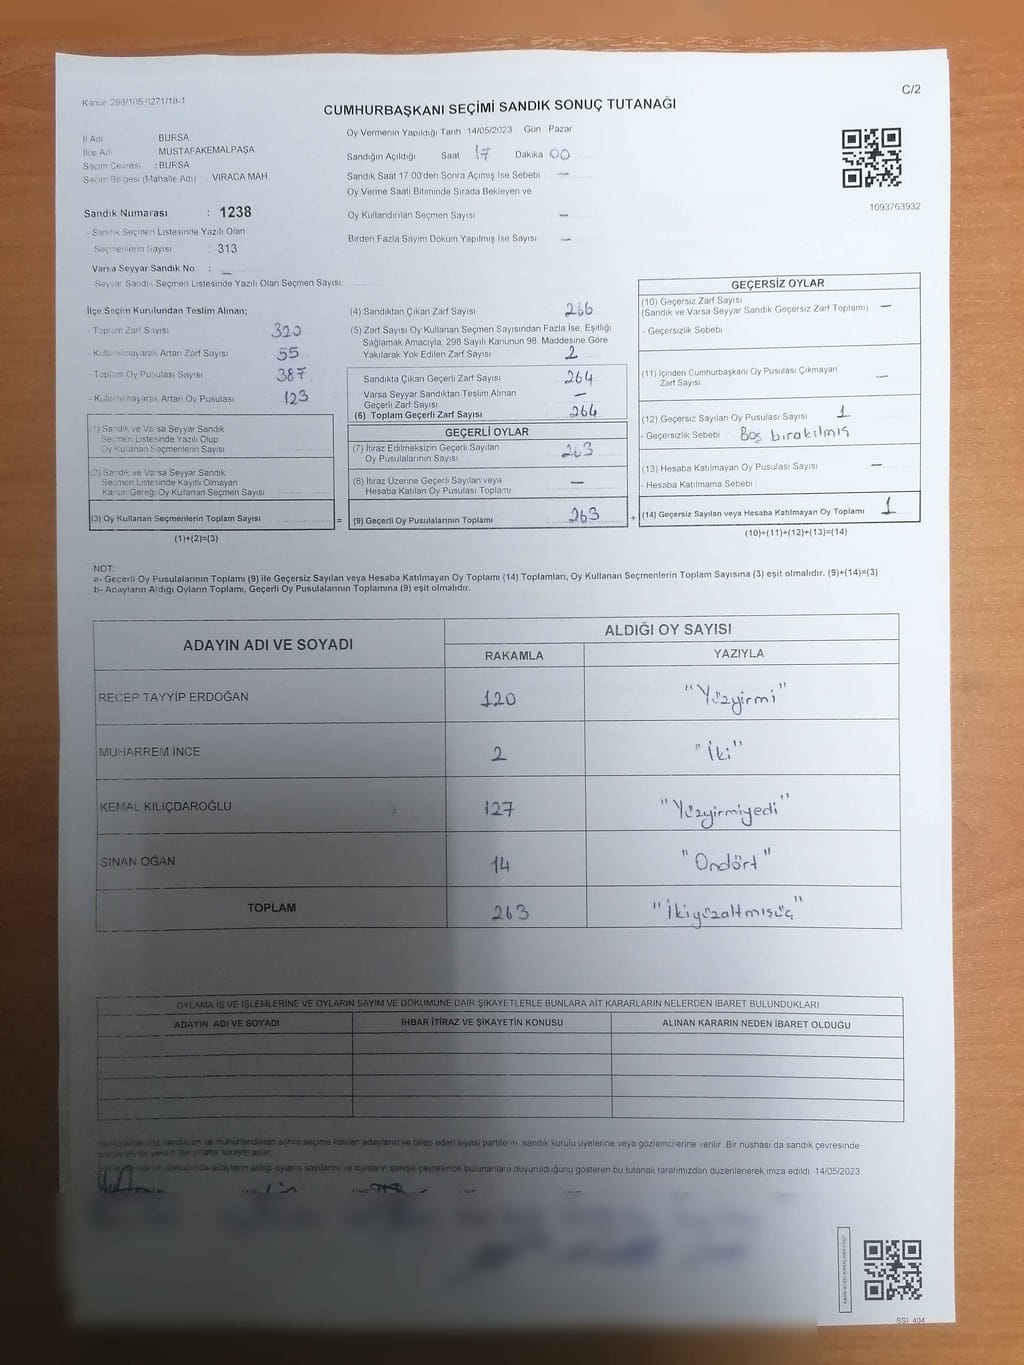 Kanun 298/105 6271/18-1
C/2
CUMHURBAŞKANI SEÇİMİ SANDIK SONUÇ TUTANAĞI
İl Adı BURSA
İlçe Adı MUSTAFAKEMALPAŞA
Seçim Çevresi : BURSA
Seçim Bölgesi (Mahalle Adı) VIRACA MAH.
Sandık Numarası : 1238
- Sandık Seçmen Listesinde Yazılı Olan
Seçmenlerin Sayısı : 313
Varsa Seyyar Sandık No : –
- Seyyar Sandık Seçmen Listesinde Yazılı Olan Seçmen Sayısı:
Oy Vermenin Yapıldığı Tarih 14/05/2023 Gün Pazar
Sandığın Açıldığı Saat 17 Dakika 00
Sandık Saat 17.00'den Sonra Açımış İse Sebebi —
Oy Verme Saati Bitiminde Sırada Bekleyen ve
Oy Kullandırılan Seçmen Sayısı —
Birden Fazla Sayım Döküm Yapılmış İse Sayısı —
1093763932
İlçe Seçim Kurulundan Teslim Alınan;
- Toplam Zarf Sayısı 320
- Kullanılmayarak Artan Zarf Sayısı 55
- Toplam Oy Pusulası Sayısı 387
- Kullanılmayarak Artan Oy Pusulası 123
(1) Sandık ve Varsa Seyyar Sandık
Seçmen Listesinde Yazılı Olup
Oy Kullanan Seçmenlerin Sayısı
(2) Sandık ve Varsa Seyyar Sandık
Seçmen Listesinde Kayıtlı Olmayan
Kanun Gereği Oy Kullanan Seçmen Sayısı
(3) Oy Kullanan Seçmenlerin Toplam Sayısı
(1)+(2)=(3)
=
(4) Sandıktan Çıkan Zarf Sayısı 266
(5) Zarf Sayısı Oy Kullanan Seçmen Sayısından Fazla İse, Eşitliği
Sağlamak Amacıyla; 298 Sayılı Kanunun 98. Maddesine Göre
Yakılarak Yok Edilen Zarf Sayısı 2
Sandıkta Çıkan Geçerli Zarf Sayısı 264
Varsa Seyyar Sandıktan Teslim Alınan
Geçerli Zarf Sayısı —
(6) Toplam Geçerli Zarf Sayısı 264
GEÇERLİ OYLAR
(7) İtiraz Edilmeksizin Geçerli Sayılan
Oy Pusulalarının Sayısı 263
(8) İtiraz Üzerine Geçerli Sayılan veya
Hesaba Katılan Oy Pusulası Toplamı —
(9) Geçerli Oy Pusulalarının Toplamı 263
+
GEÇERSİZ OYLAR
(10) Geçersiz Zarf Sayısı
(Sandık ve Varsa Seyyar Sandık Geçersiz Zarf Toplamı) —
- Geçersizlik Sebebi
(11) İçinden Cumhurbaşkanı Oy Pusulası Çıkmayan
Zarf Sayısı —
(12) Geçersiz Sayılan Oy Pusulası Sayısı 1
- Geçersizlik Sebebi : Boş bırakılmış
(13) Hesaba Katılmayan Oy Pusulası Sayısı —
- Hesaba Katılmama Sebebi :
(14) Geçersiz Sayılan veya Hesaba Katılmayan Oy Toplamı 1
(10)+(11)+(12)+(13)=(14)
NOT:
a- Geçerli Oy Pusulalarının Toplamı (9) ile Geçersiz Sayılan veya Hesaba Katılmayan Oy Toplamı (14) Toplamları, Oy Kullanan Seçmenlerin Toplam Sayısına (3) eşit olmalıdır. (9)+(14)=(3)
b- Adayların Aldığı Oyların Toplamı, Geçerli Oy Pusulalarının Toplamına (9) eşit olmalıdır.
ADAYIN ADI VE SOYADI
ALDIĞI OY SAYISI
RAKAMLA YAZIYLA
RECEP TAYYİP ERDOĞAN 120 "Yüzyirmi"
MUHARREM İNCE 2 "İki"
KEMAL KILIÇDAROĞLU 127 "Yüzyirmiyedi"
SİNAN OĞAN 14 "Ondört"
TOPLAM 263 "İkiyüzaltmışüç"
OYLAMA İŞ VE İŞLEMLERİNE VE OYLARIN SAYIM VE DÖKÜMÜNE DAİR ŞİKAYETLERLE BUNLARA AİT KARARLARIN NELERDEN İBARET BULUNDUKLARI
ADAYIN ADI VE SOYADI İHBAR İTİRAZ VE ŞİKAYETİN KONUSU ALINAN KARARIN NEDEN İBARET OLDUĞU
mühürlendikten sonra seçime katılan adayların ve talep eden siyasi partilerin sandık kurulu üyelerine veya gözlemcilerine verilir. Bir nüshası da sandık çevresinde
adayların aldığı oyların sayılarını ve bunların sandık çevresinde bulunanlara duyurulduğunu gösteren bu tutanak tarafımızdan düzenlenerek imza edildi. 14/05/2023
SSİ 404